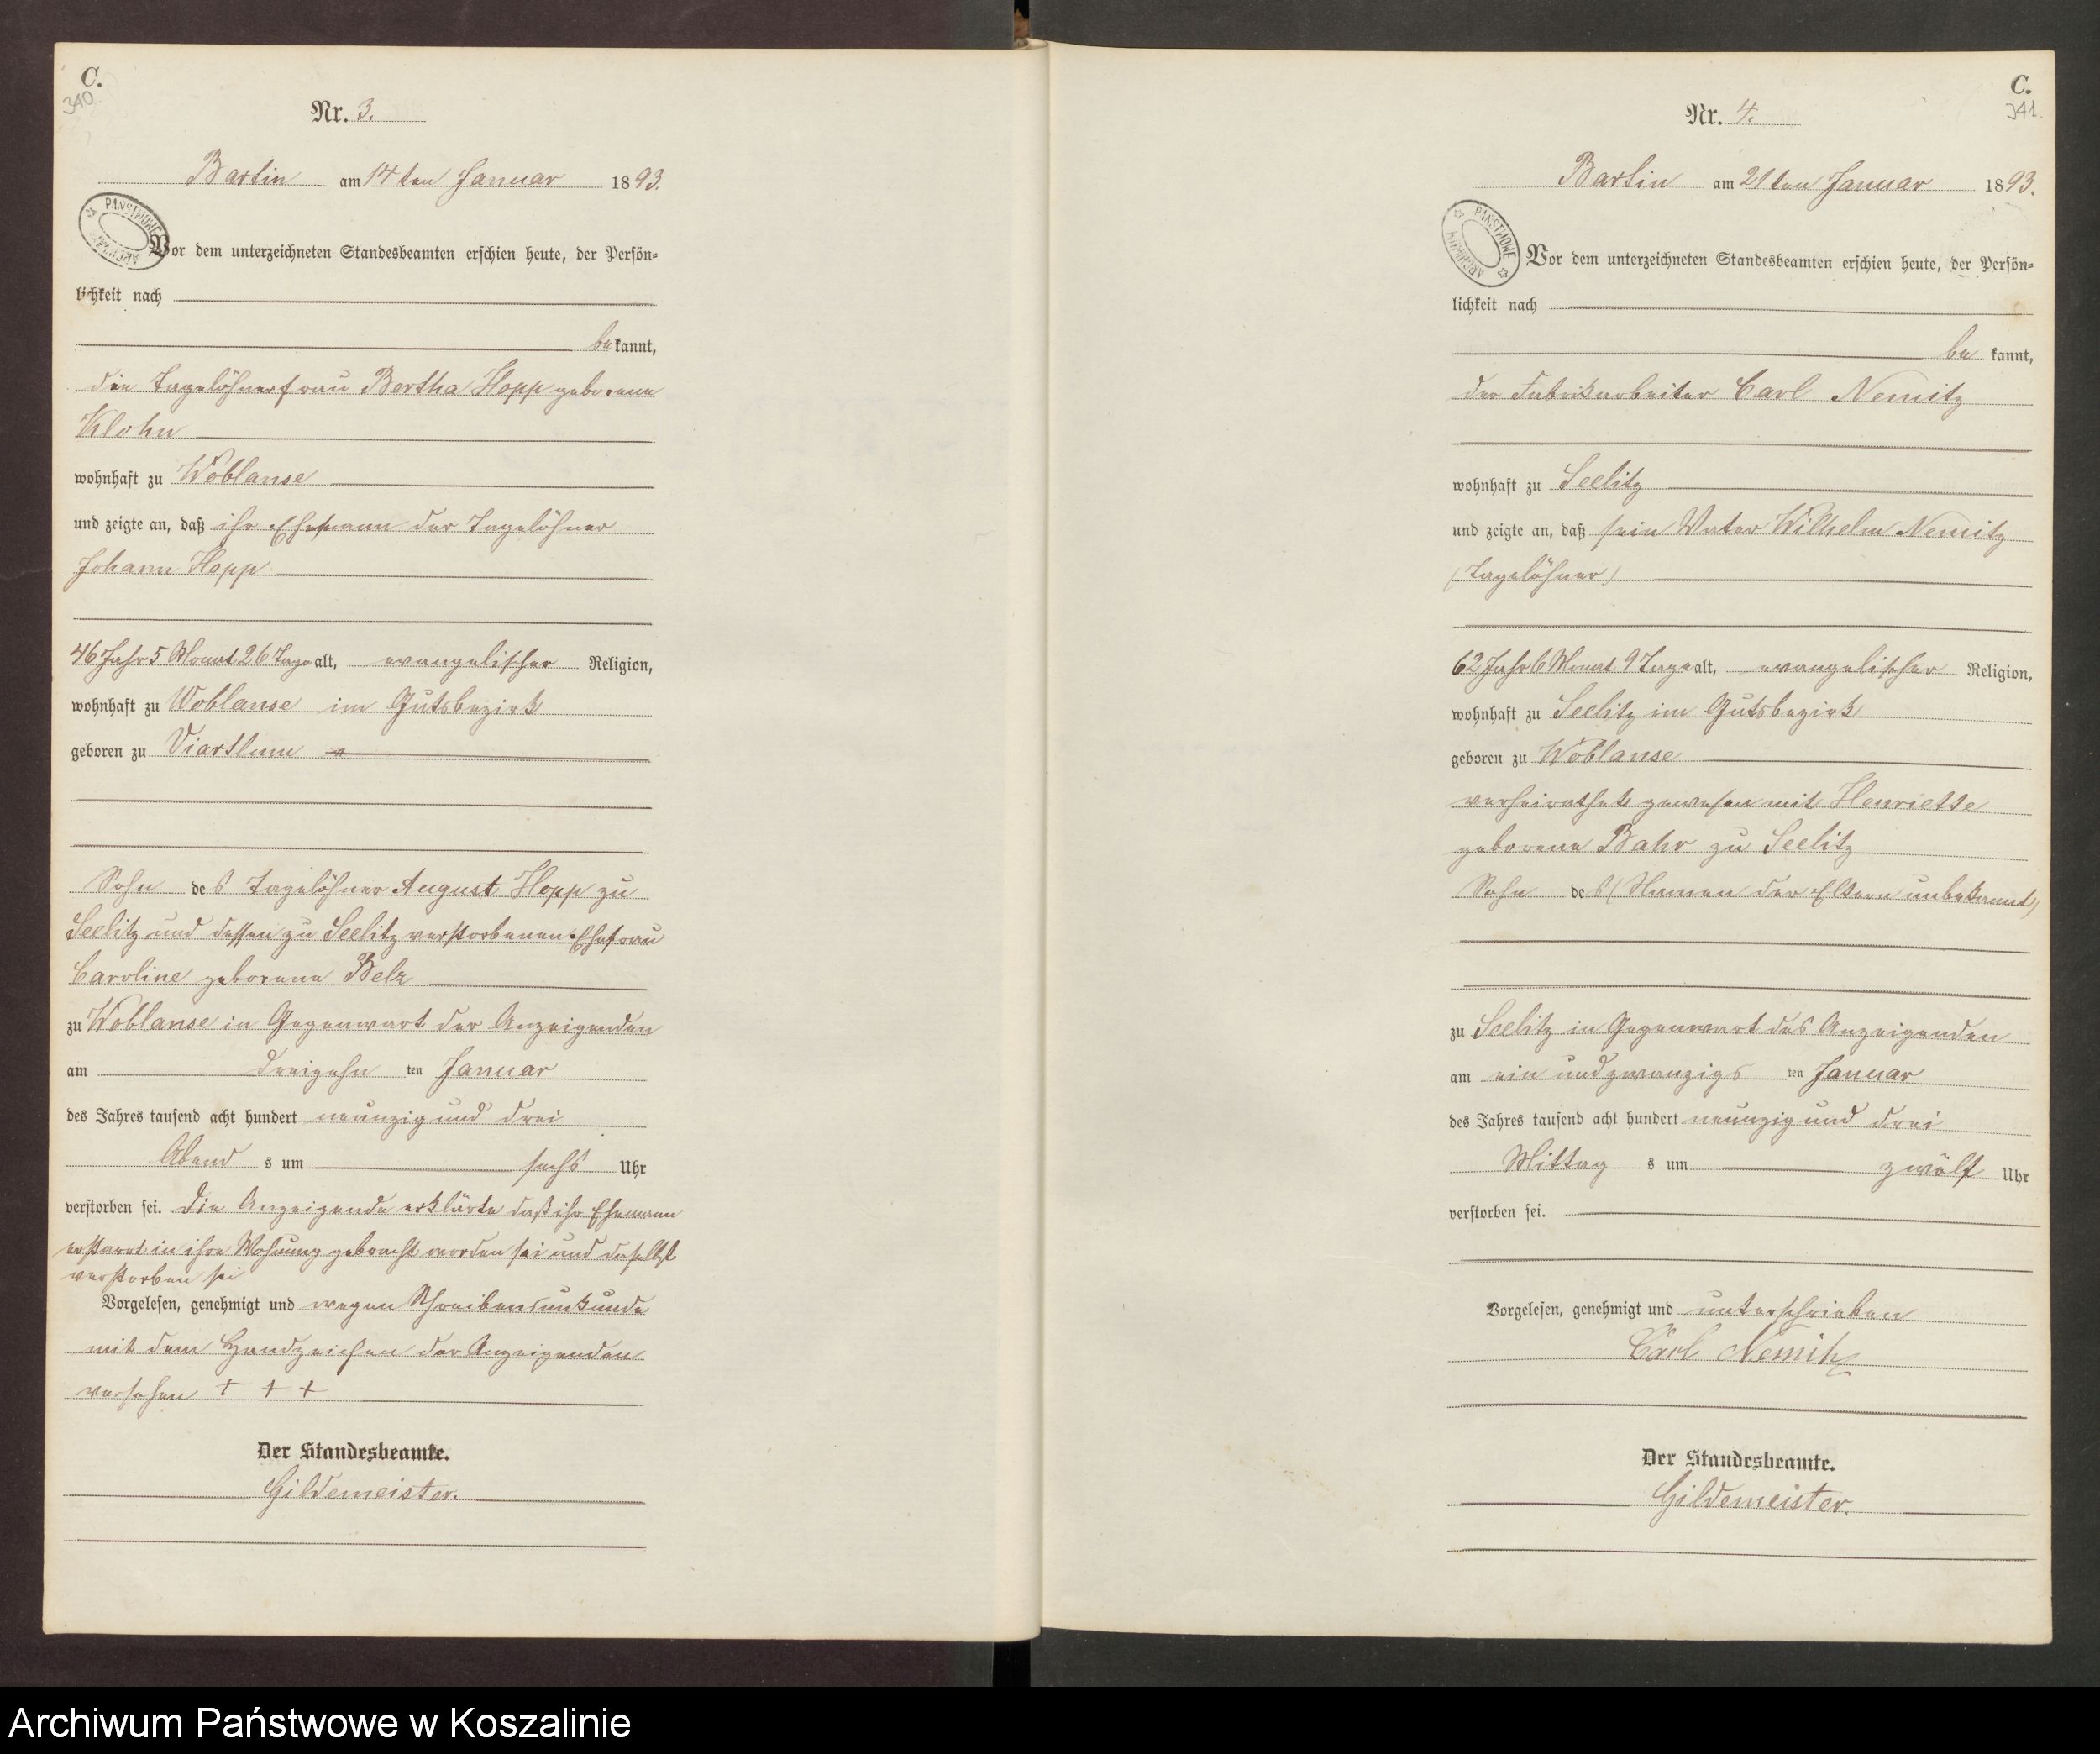 C.
340.
Nr. 3.
Bartin am 14ten Januar 1893.
PAŃSTWOWE ARCHIWUM
Vor dem unterzeichneten Standesbeamten erschien heute, der Persön-
lichkeit nach
bekannt,
die Tagelöhnerfrau Bertha Hopp geborene
Klohn
wohnhaft zu Woblanse
und zeigte an, daß ihr Ehemann der Tagelöhner
Johann Hopp
46 Jahr 5 Monat 26 Tage alt, evangelischer Religion,
wohnhaft zu Woblanse im Gutsbezirk
geboren zu Viartlum
Sohn des Tagelöhner August Hopp zu
Seelitz und dessen zu Seelitz verstorbenen Ehefrau
Caroline geborene Belz
zu Woblanse in Gegenwart der Anzeigenden
am dreizehn ten Januar
des Jahres tausend acht hundert neunzig und drei
Abend s um sechs Uhr
verstorben sei. Die Anzeigende erklärte daß ihr Ehemann
erstarrt in ihre Wohnung gebracht worden sei und daselbst
verstorben sei
Vorgelesen, genehmigt und wegen Schreibensunkunde
mit dem Handzeichen der Anzeigenden
versehen + + +
Der Standesbeamte.
Gildemeister.
C.
341.
Nr. 4.
Bartin am 21ten Januar 1893.
PAŃSTWOWE ARCHIWUM
Vor dem unterzeichneten Standesbeamten erschien heute, der Persön-
lichkeit nach
be kannt,
der Fabrikarbeiter Carl Nemitz
wohnhaft zu Seelitz
und zeigte an, daß sein Vater Wilhelm Nemitz
(Tagelöhner)
62 Jahr 6 Monat 9 Tage alt, evangelischer Religion,
wohnhaft zu Seelitz im Gutsbezirk
geboren zu Woblanse
verheirathet gewesen mit Henriette
geborene Bahr zu Seelitz
Sohn des (Namen der Eltern unbekannt)
zu Seelitz in Gegenwart des Anzeigenden
am ein und zwanzigs ten Januar
des Jahres tausend acht hundert neunzig und drei
Mittag s um zwölf Uhr
verstorben sei.
Vorgelesen, genehmigt und unterschrieben
Carl Nemitz
Der Standesbeamte.
Gildemeister.
Archiwum Państwowe w Koszalinie